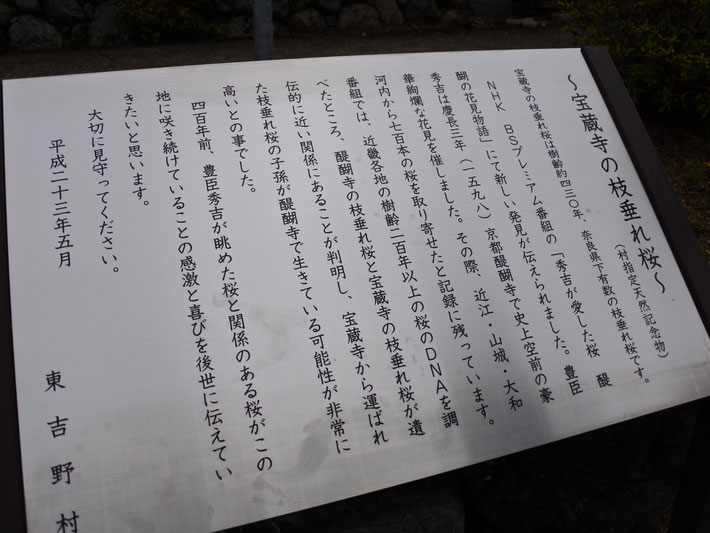 ～宝蔵寺の枝垂れ桜～
（村指定天然記念物）
宝蔵寺の枝垂れ桜は樹齢約四三〇年、奈良県下有数の枝垂れ桜です。
NHK BSプレミアム番組の「秀吉が愛した桜 醍
醐の花見物語」にて新しい発見が伝えられました。豊臣
秀吉は慶長三年（一五九八）京都醍醐寺で史上空前の豪
華絢爛な花見を催しました。その際、近江・山城・大和
河内から七百本の桜を取り寄せたと記録に残っています。
番組では、近畿各地の樹齢二百年以上の桜のDNAを調
べたところ、醍醐寺の枝垂れ桜と宝蔵寺の枝垂れ桜が遺
伝的に近い関係にあることが判明し、宝蔵寺から運ばれ
た枝垂れ桜の子孫が醍醐寺で生きている可能性が非常に
高いとの事でした。
四百年前、豊臣秀吉が眺めた桜と関係のある桜がこの
地に咲き続けていることの感激と喜びを後世に伝えてい
きたいと思います。
大切に見守ってください。
平成二十三年五月
東吉野村